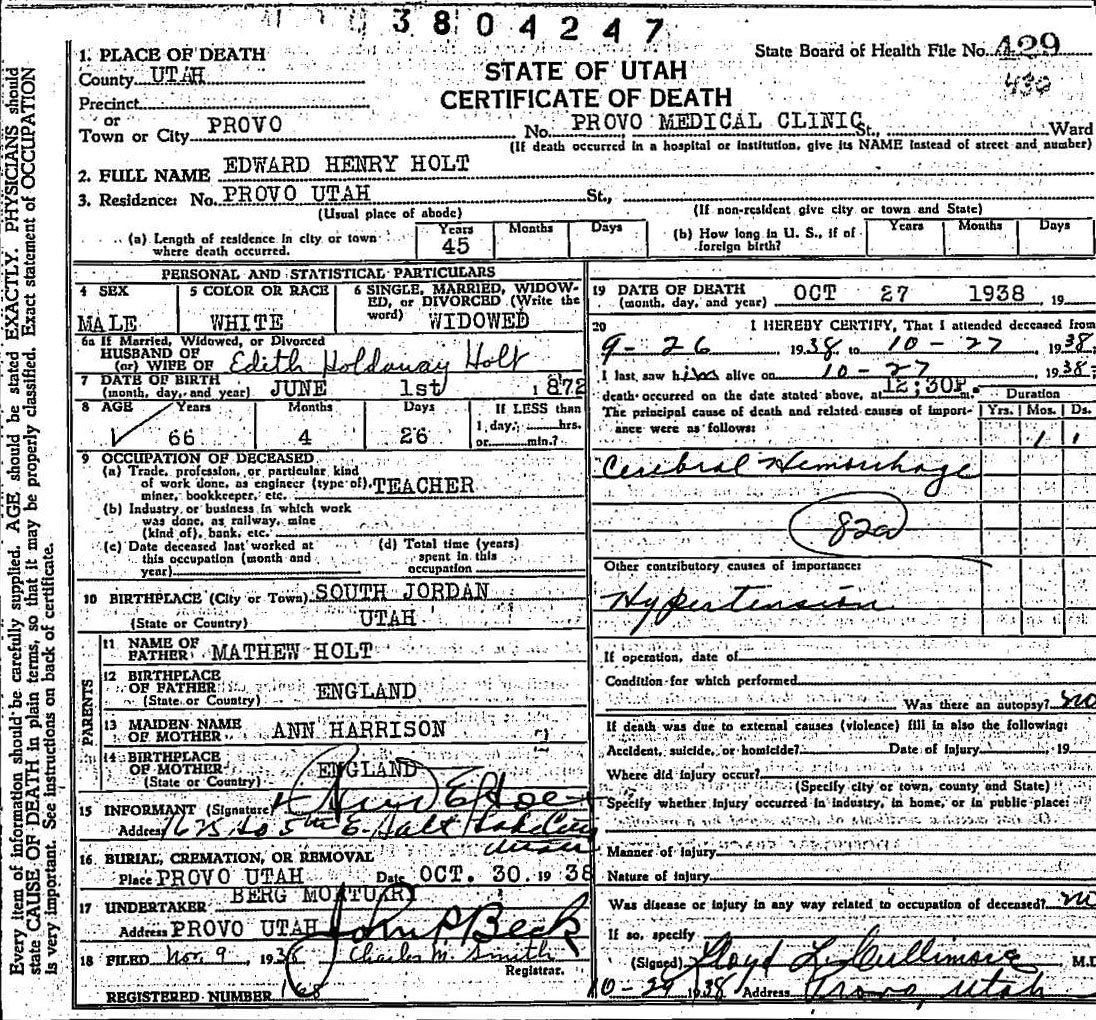 3804247
State Board of Health File No. 429
430
STATE OF UTAH
CERTIFICATE OF DEATH
1. PLACE OF DEATH
County UTAH
Precinct
or
Town or City PROVO No. PROVO MEDICAL CLINIC St., Ward
(If death occurred in a hospital or institution, give its NAME instead of street and number)
2. FULL NAME EDWARD HENRY HOLT
3. Residence: No. PROVO UTAH St.,
(Usual place of abode) (If non-resident give city or town and State)
(a) Length of residence in city or town where death occurred. Years 45 Months Days
(b) How long in U. S., if of foreign birth? Years Months Days
PERSONAL AND STATISTICAL PARTICULARS
4 SEX MALE
5 COLOR OR RACE WHITE
6 SINGLE, MARRIED, WIDOWED, or DIVORCED (Write the word) WIDOWED
6a If Married, Widowed, or Divorced
HUSBAND OF
(or) WIFE OF Edith Holdaway Holt
7 DATE OF BIRTH
(month, day, and year) JUNE 1st 1872
8 AGE Years Months Days If LESS than
66 4 26 1 day, hrs.
or min.?
9 OCCUPATION OF DECEASED
(a) Trade, profession, or particular kind
of work done, as engineer (type of),
miner, bookkeeper, etc. TEACHER
(b) Industry or business in which work
was done, as railway, mine
(kind of), bank, etc.
(c) Date deceased last worked at
this occupation (month and
year)
(d) Total time (years)
spent in this
occupation
10 BIRTHPLACE (City or Town) SOUTH JORDAN
(State or Country) UTAH
PARENTS
11 NAME OF
FATHER MATHEW HOLT
12 BIRTHPLACE
OF FATHER ENGLAND
(State or Country)
13 MAIDEN NAME
OF MOTHER ANN HARRISON
14 BIRTHPLACE
OF MOTHER ENGLAND
(State or Country)
15 INFORMANT (Signature)
Address 5th E. Salt Lake City
Utah
16 BURIAL, CREMATION, OR REMOVAL
Place PROVO UTAH Date OCT. 30. 1938
17 UNDERTAKER BERG MORTUARY
Address PROVO UTAH John P Beck
18 FILED Nov. 9, 1938 Charles M. Smith
Registrar.
REGISTERED NUMBER 168
19 DATE OF DEATH
(month, day, and year) OCT 27 1938, 19
20 I HEREBY CERTIFY, That I attended deceased from
9-26 1938 to 10-27 1938;
I last saw him alive on 10-27 1938;
death occurred on the date stated above, at 12;30P. m.
The principal cause of death and related causes of importance were as follows:
Duration
Yrs. Mos. Ds.
1 1
Cerebral Hemorrhage
82a
Other contributory causes of importance:
Hypertension
If operation, date of
Condition for which performed
Was there an autopsy? no
If death was due to external causes (violence) fill in also the following:
Accident, suicide, or homicide? Date of injury , 19
Where did injury occur?
(Specify city or town, county and State)
Specify whether injury occurred in industry, in home, or in public place:
Manner of injury
Nature of injury
Was disease or injury in any way related to occupation of deceased? no
If so, specify
(Signed) Lloyd L. Cullimore M.D.
10-29 1938 Address Provo, Utah
Every item of information should be carefully supplied. AGE should be stated EXACTLY. PHYSICIANS should
state CAUSE OF DEATH in plain terms, so that it may be properly classified. Exact statement of OCCUPATION
is very important. See instructions on back of certificate.